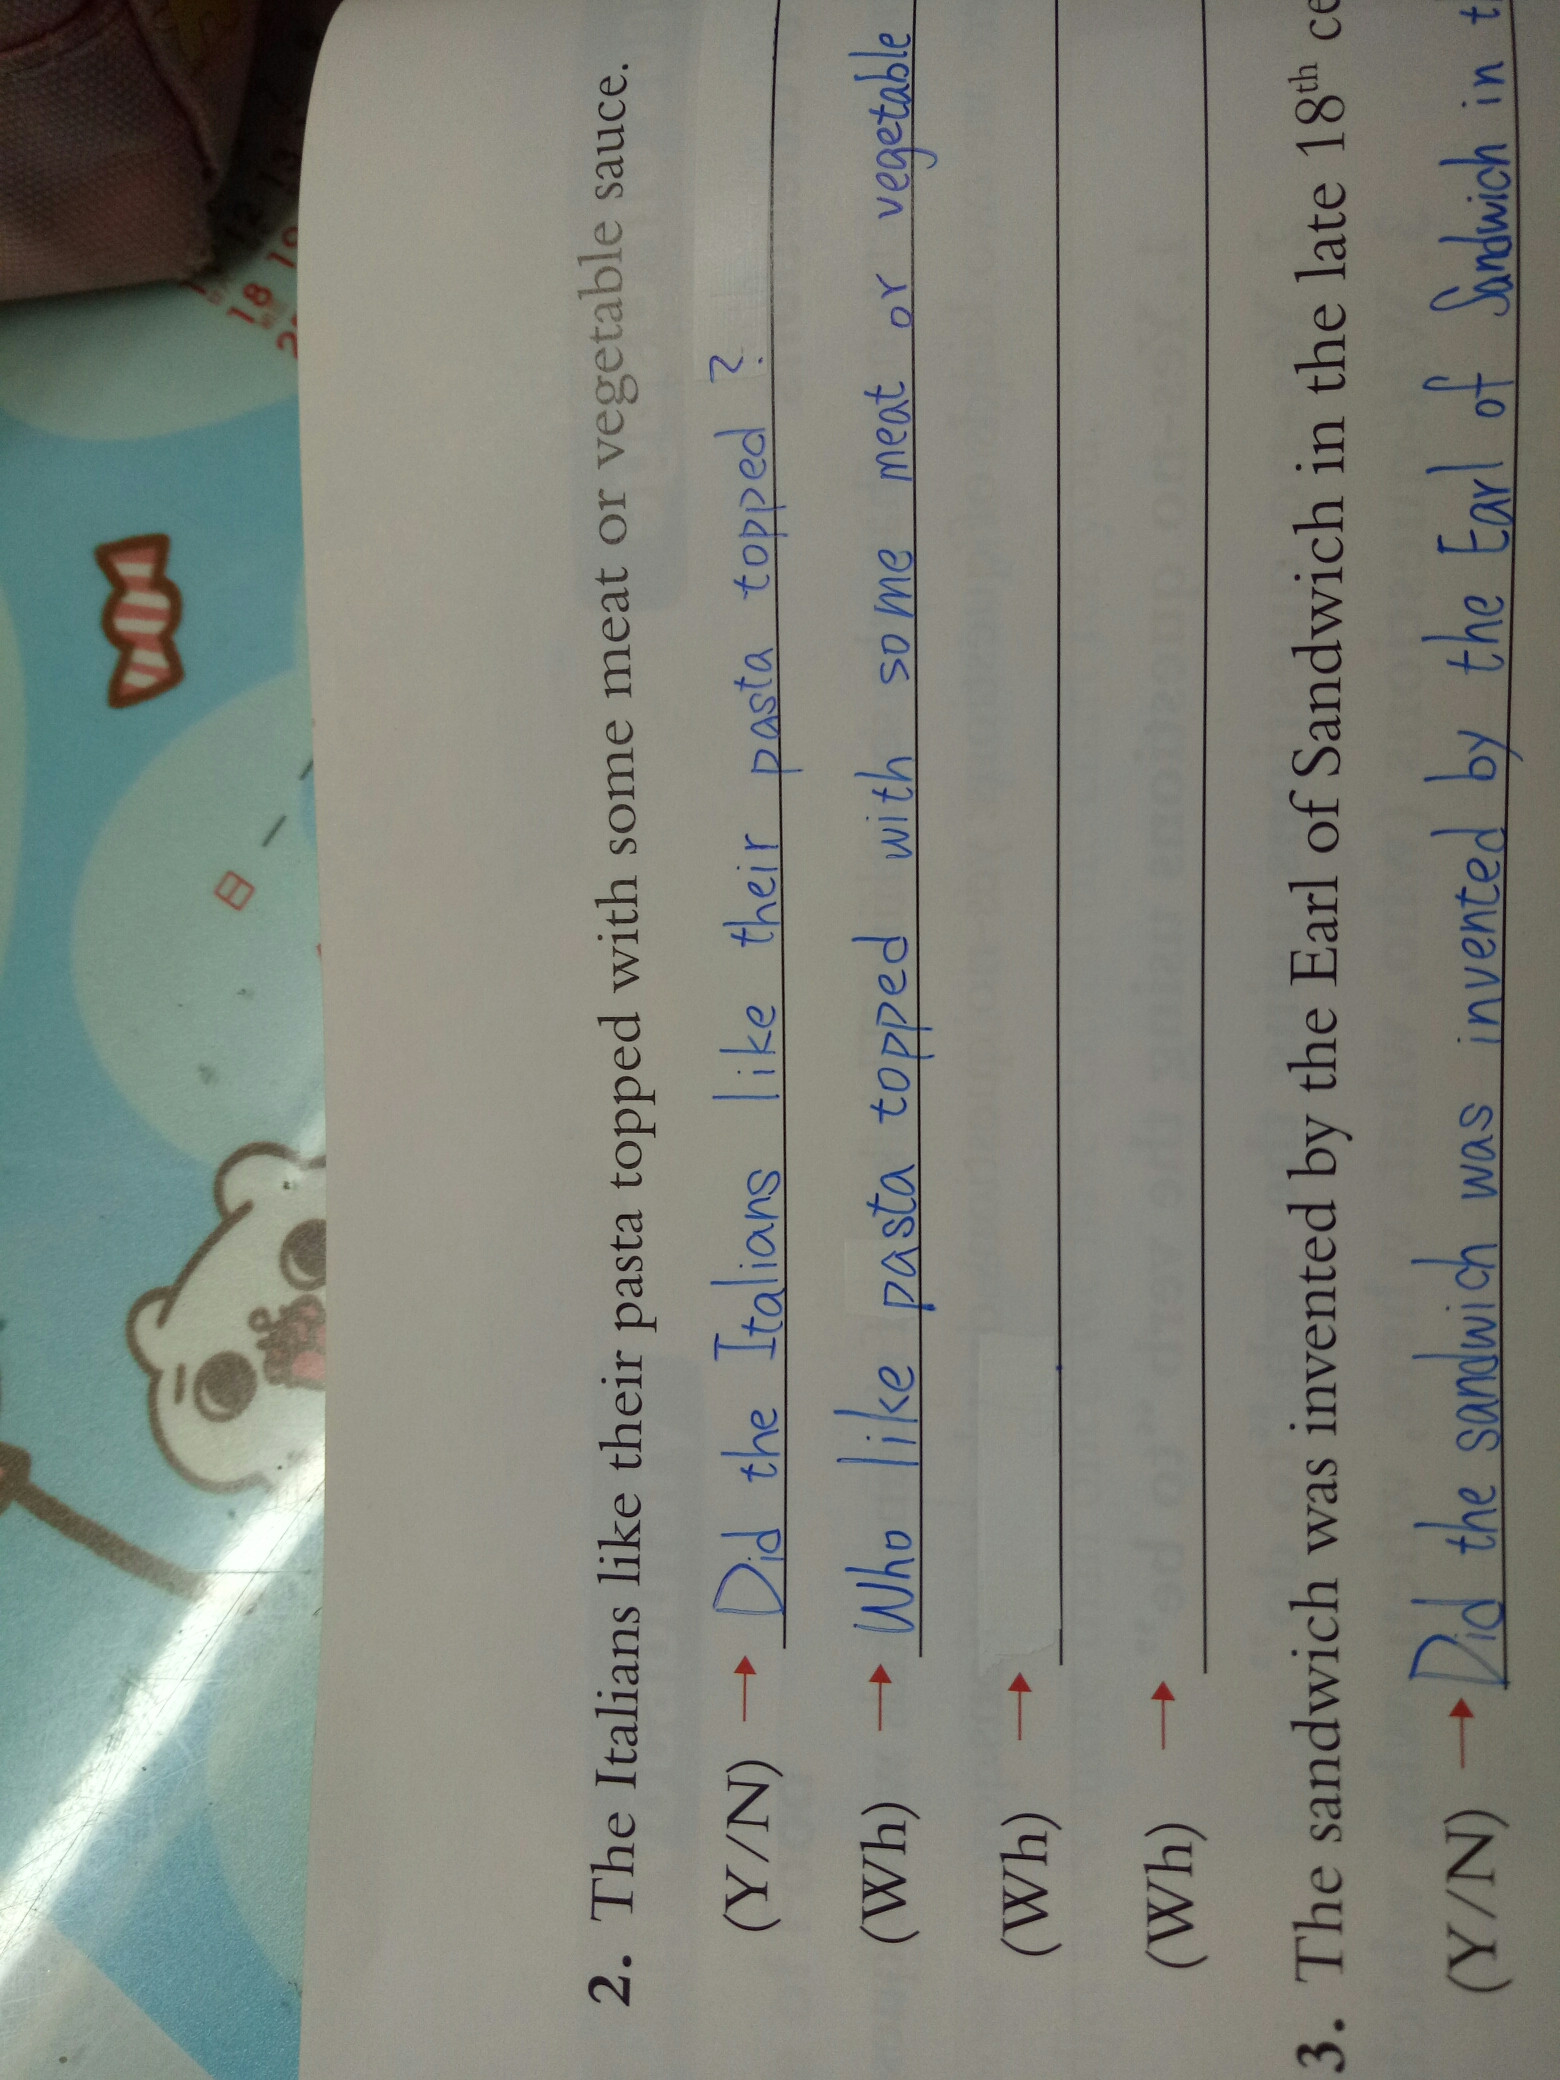 2. The Italians like their pasta topped with some meat or vegetable sauce.
(Y/N) → Did the Italians like their pasta topped ?
(Wh) → Who like pasta topped with some meat or vegetable
(Wh) →
(Wh) →
3. The sandwich was invented by the Earl of Sandwich in the late 18th ce
(Y/N) → Did the sandwich was invented by the Earl of Sandwich in t
日
18 19
12 13